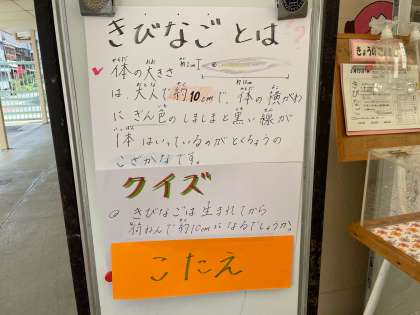 きびなごとは?
体の大きさ
は、大人で約10cmで、体の横がわ
にぎん色のしましまと黒い線が
1本はいっているのがとくちょうの
こざかなです。
クイズ
きびなごは生まれてから
約ねんで約10cmになるでしょうか。
こたえ